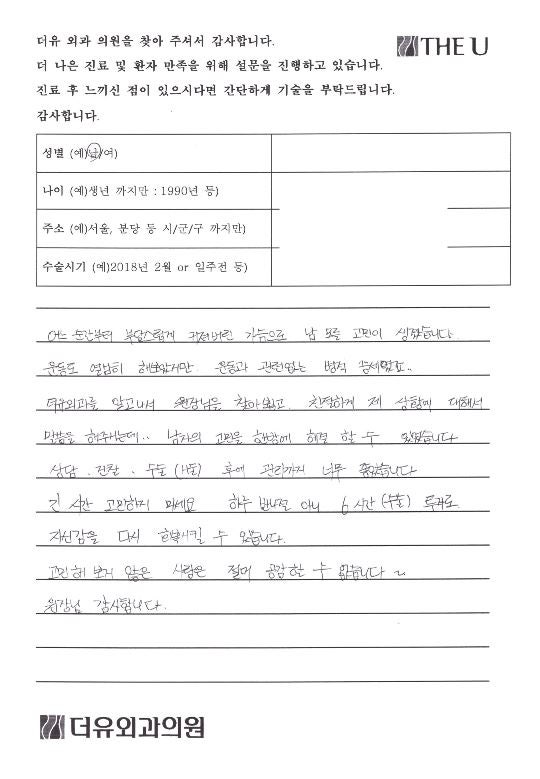 더유 외과 의원을 찾아 주셔서 감사합니다.
THE U
더 나은 진료 및 환자 만족을 위해 설문을 진행하고 있습니다.
진료 후 느끼신 점이 있으시다면 간단하게 기술을 부탁드립니다.
감사합니다.
성별 (예)남/여)
나이 (예)생년 까지만 : 1990년 등)
주소 (예)서울, 분당 등 시/군/구 까지만)
수술시기 (예)2018년 2월 or 일주전 등)
어느 순간부터 부담스럽게 커져버린 가슴으로 남 모를 고민이 생겼습니다.
운동도 열심히 해보았지만 운동과 관련없는
더유외과를 알고나서 원장님을 찾아뵙고. 친절하게 제 상황에 대해서
말씀을 해주시는데.. 남자의 고민을 한방에 해결 할 수 있었습니다
상담. 진찰. 수술 후에 관리까지 너무 좋았습니다
긴 시간 고민하지 마세요 하루 반나절 아니 6시간 (수술) 투자로
자신감을 다시 회복시킬 수 있습니다.
고민해 보지 않은 사람은 절대 공감할 수 없습니다 ~
원장님 감사합니다.
더유외과의원